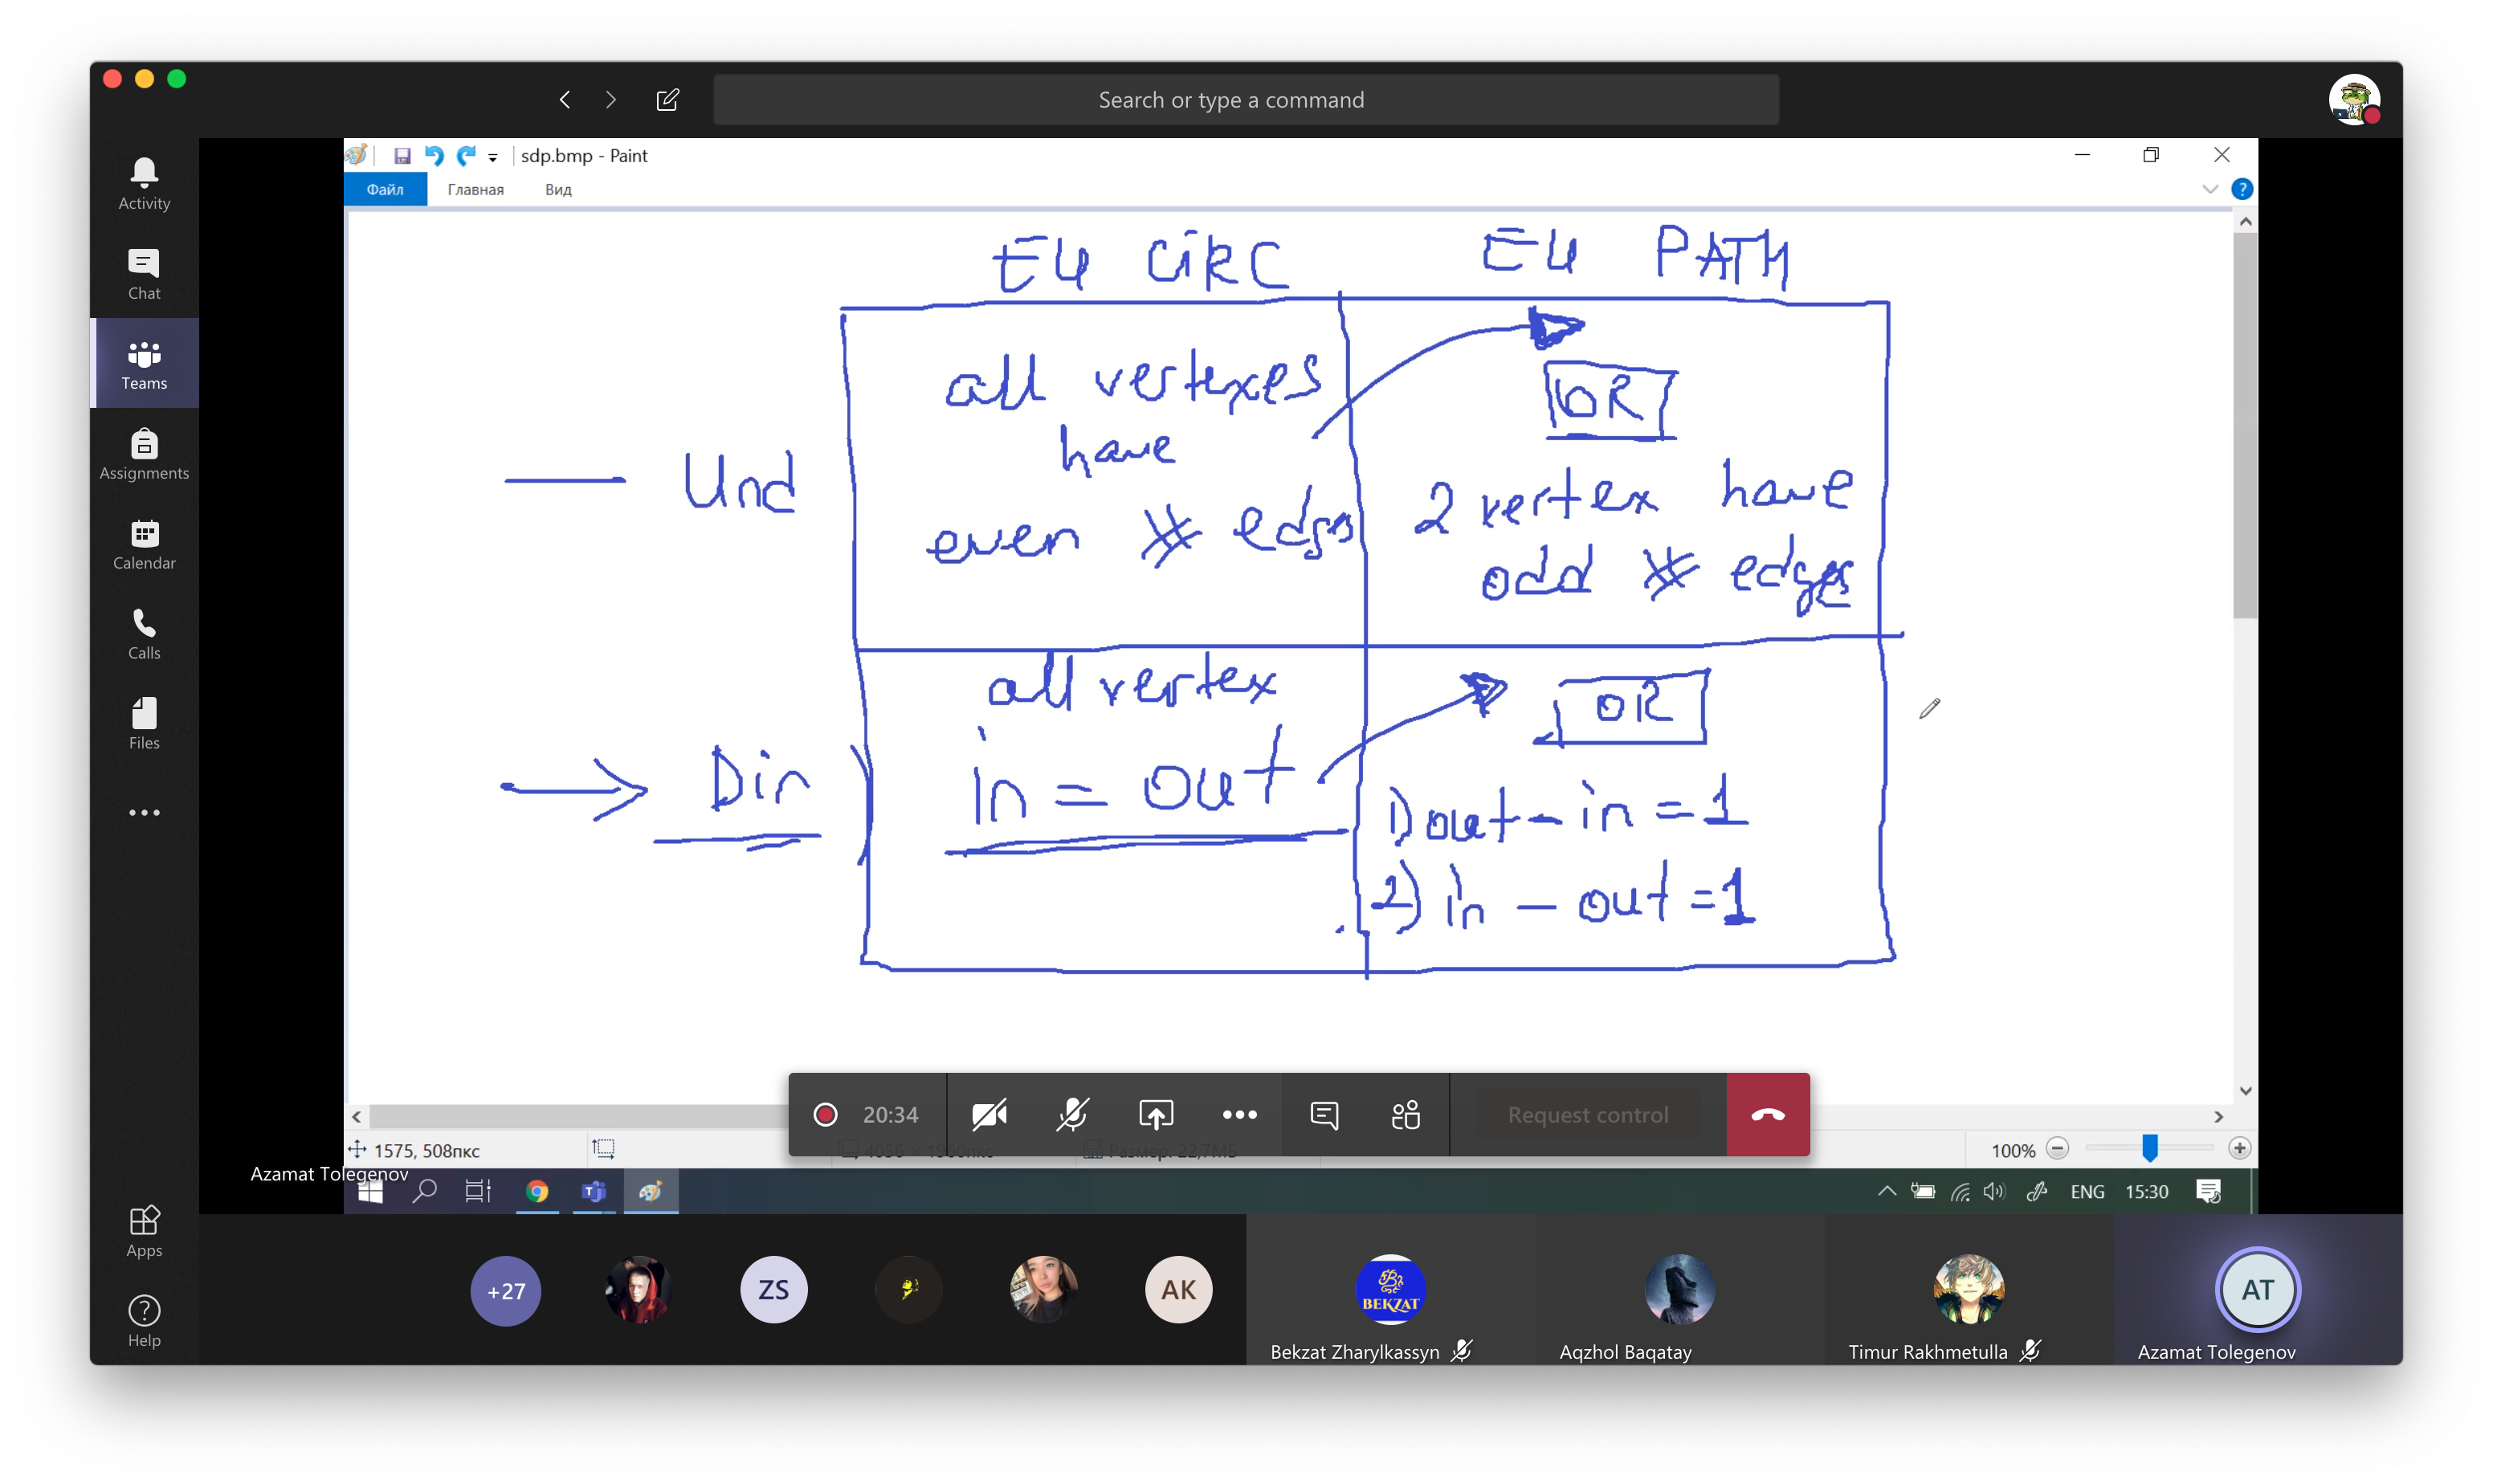 Search or type a command
Activity
Chat
Teams
Assignments
Calendar
Calls
Files
Apps
Help
sdp.bmp - Paint
Файл Главная Вид
EU CiRC EU PATH
Und
all vertexes
have
even # edgs
OR
2 vertex have
odd # edges
Dir
all vertex
in = out
OR
1) out - in = 1
2) in - out = 1
20:34
Request control
1575, 508пкс
100%
Azamat Tolegenov
ENG 15:30
+27
ZS
AK
BEKZAT
AT
Bekzat Zharylkassyn
Aqzhol Baqatay
Timur Rakhmetulla
Azamat Tolegenov